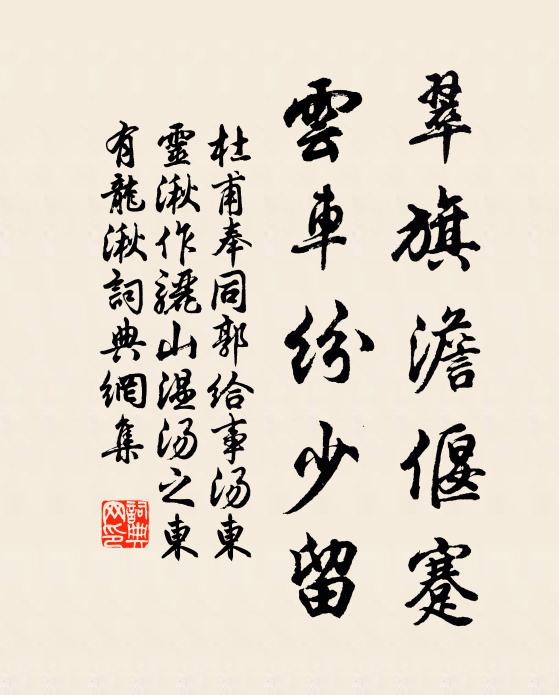 翠旗澹偃蹇
雲車紛少留
杜甫奉同郭給事湯東
靈湫作驪山溫湯之東
有龍湫詞典網集
詞典
网印